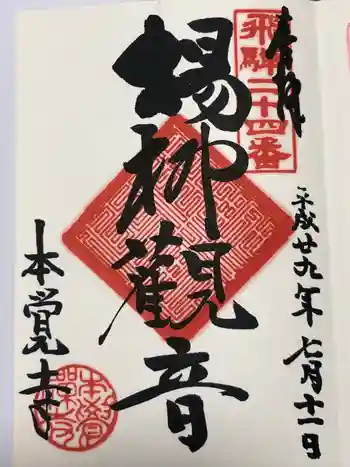 奉拝
飛騨二十四番
平成廿九年七月十一日
楊柳觀音
本覚寺